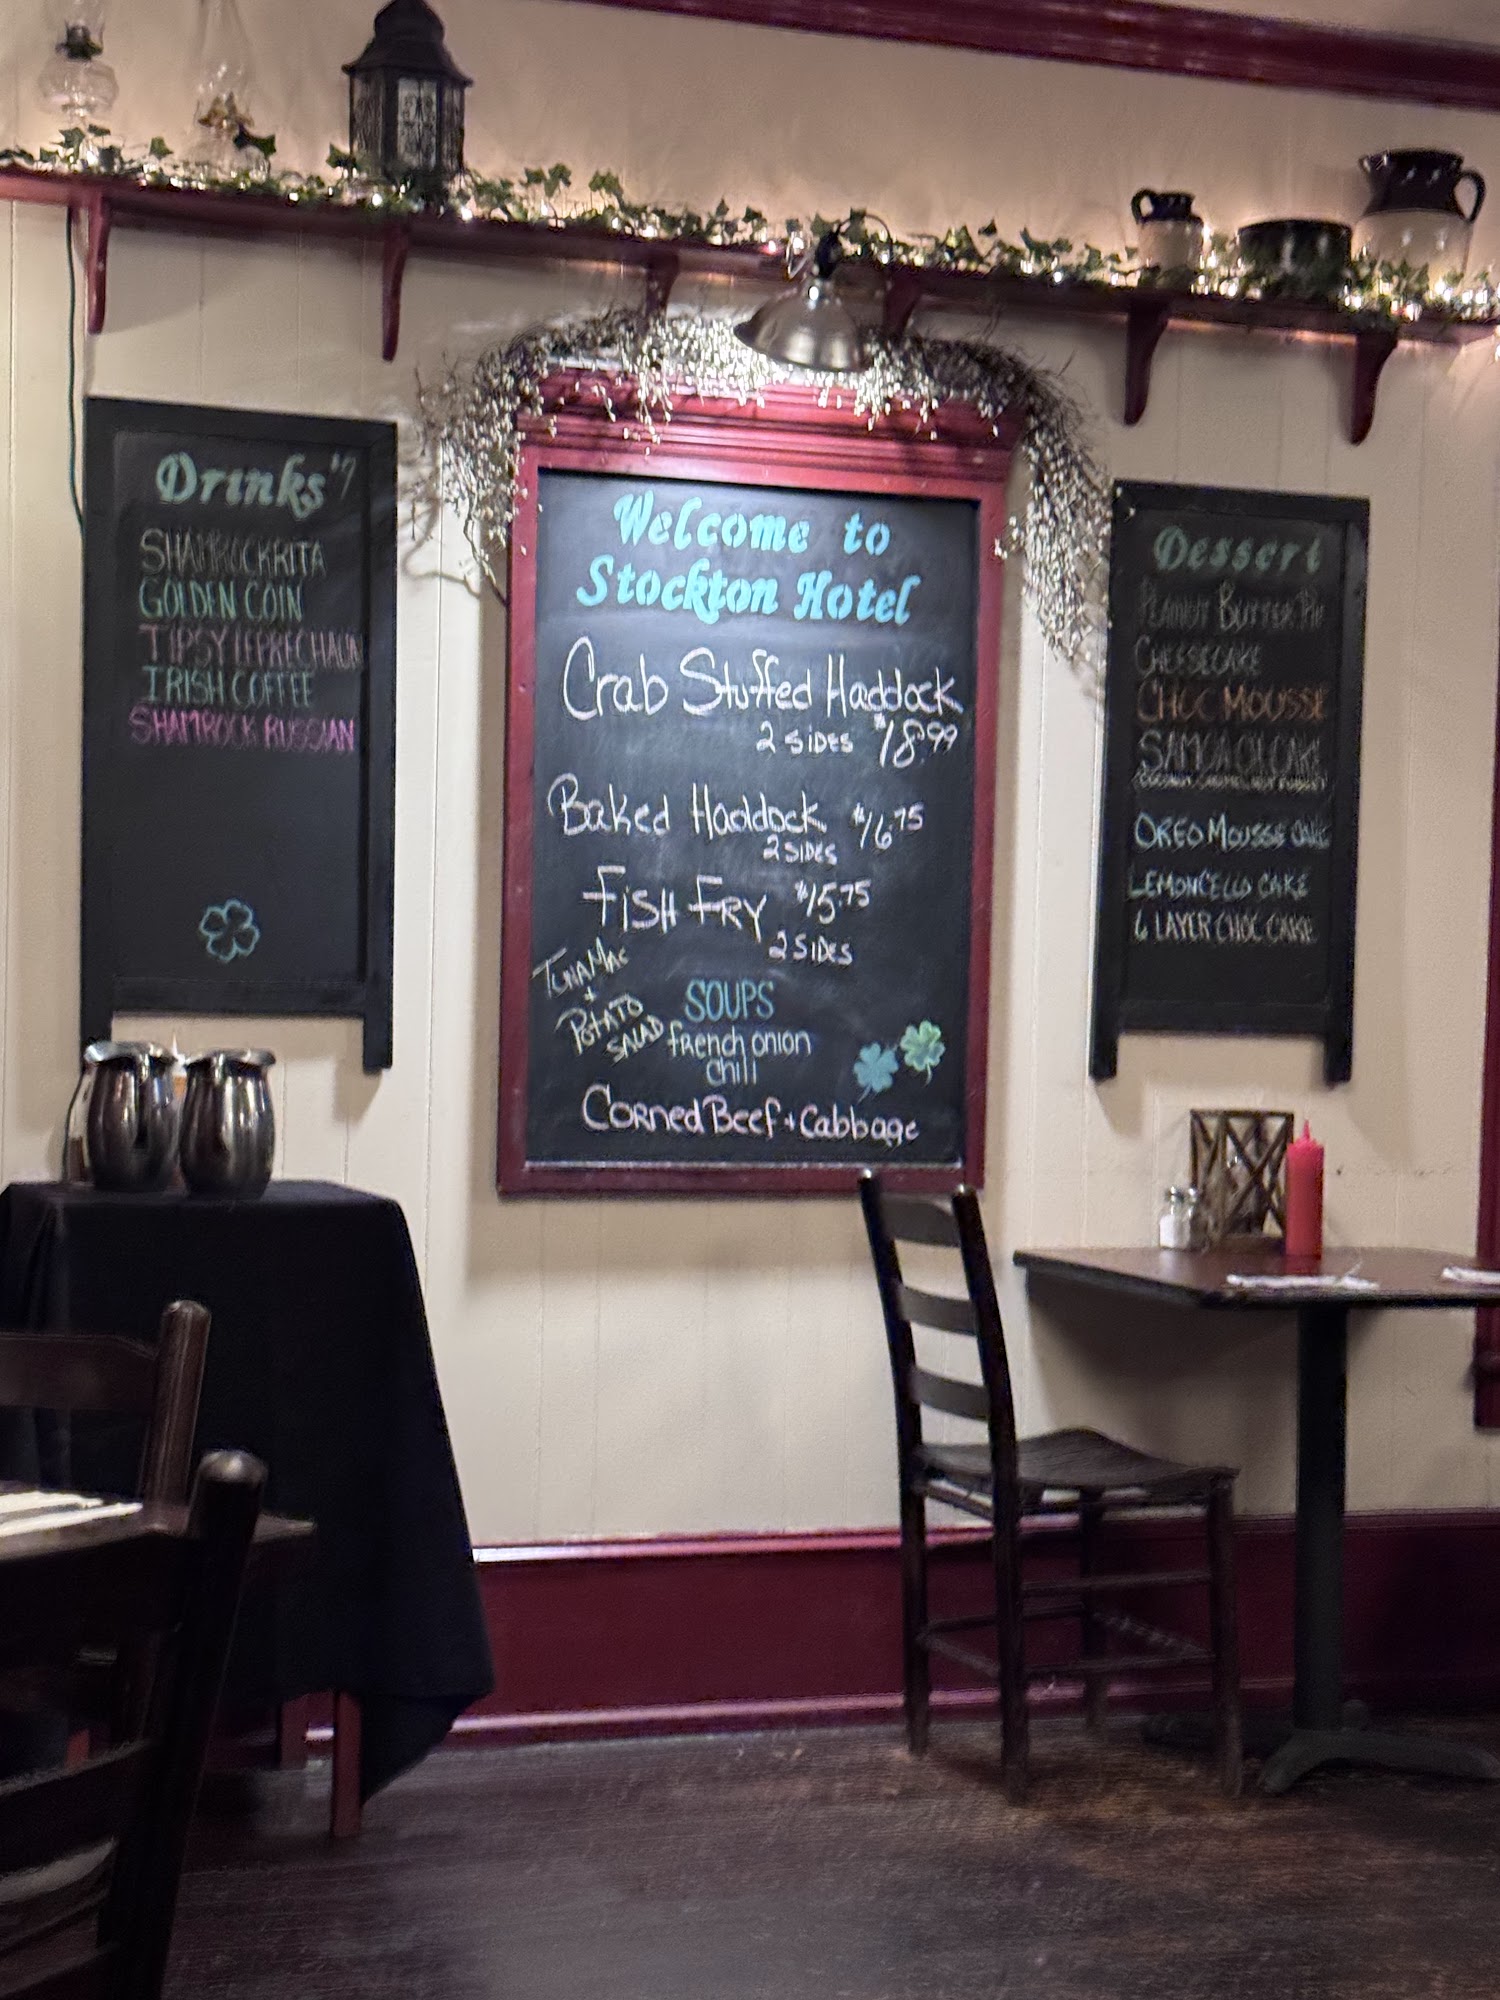 Drinks $7
SHAMROCKRITA
GOLDEN COIN
TIPSY LEPRECHAUN
IRISH COFFEE
SHAMROCK RUSSIAN
Welcome to
Stockton Hotel
Crab Stuffed Haddock
2 SIDES $18.99
Baked Haddock $16.75
2 SIDES
FISH FRY $15.75
2 SIDES
TUNA MAC
+
POTATO
SALAD
SOUPS
french onion
chili
Corned Beef + Cabbage
Dessert
PEANUT BUTTER PIE
CHEESECAKE
CHOC MOUSSE
SAMOA CH. CAKE
OREO MOUSSE CAKE
LEMONCELLO CAKE
6 LAYER CHOC CAKE